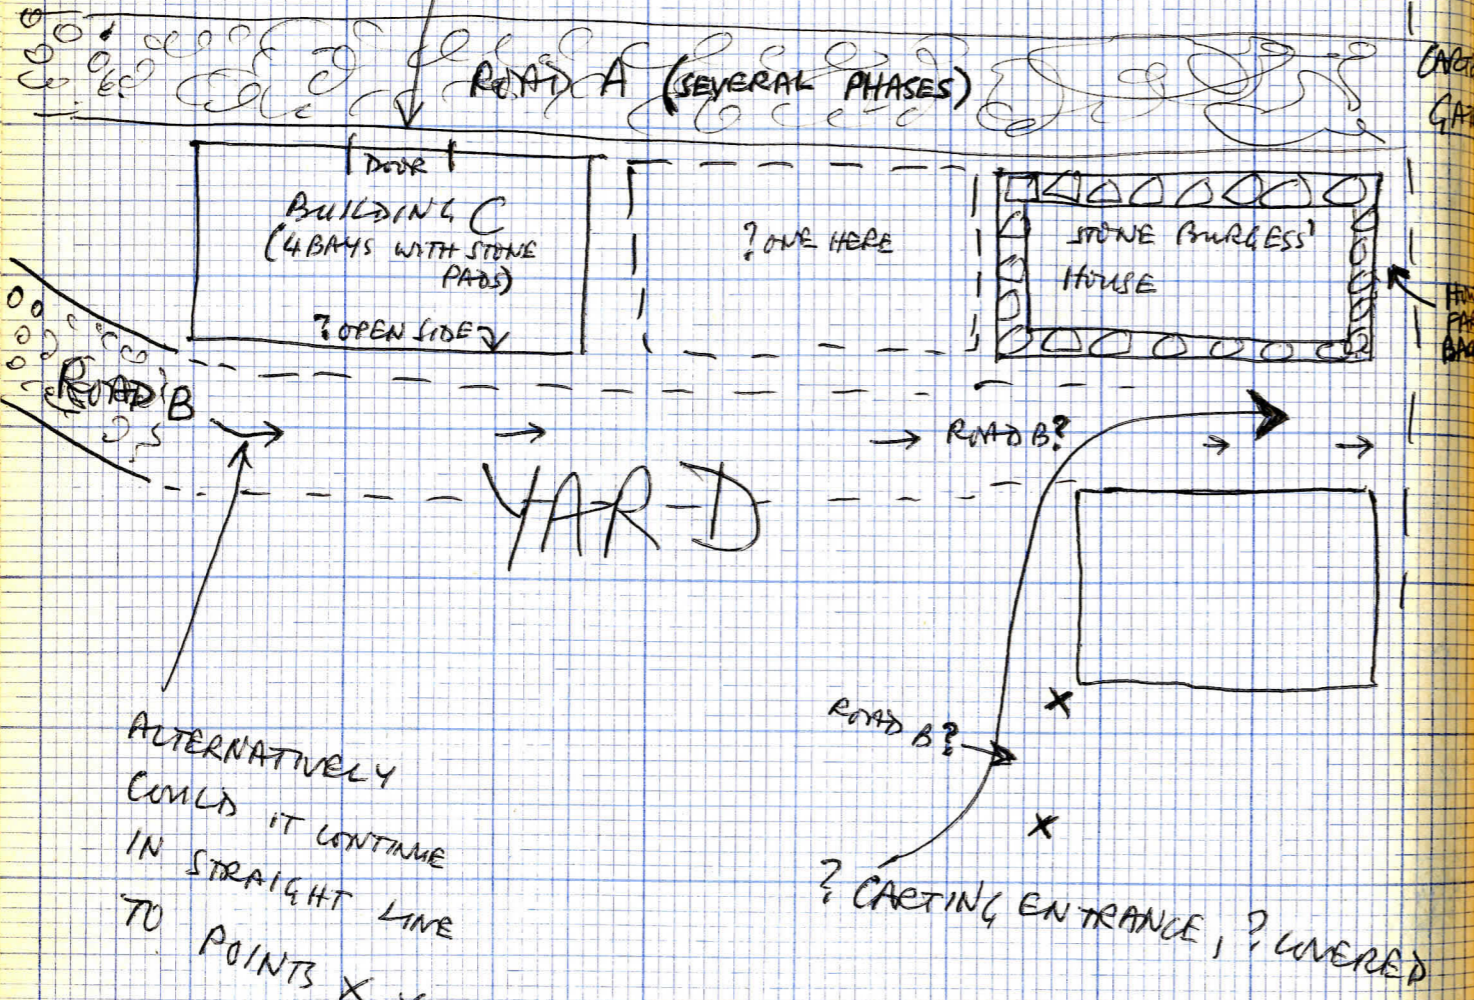 ROAD A (SEVERAL PHASES)
DOOR
BUILDING C
(4 BAYS WITH STONE
PADS)
? OPEN SIDE
? ONE HERE
STONE BURGESS'
HOUSE
ROAD B
ROAD B?
YARD
ROAD B?
ALTERNATIVELY
COULD IT CONTINUE
IN STRAIGHT LINE
TO POINTS X
X
X
? CARTING ENTRANCE, ? COVERED